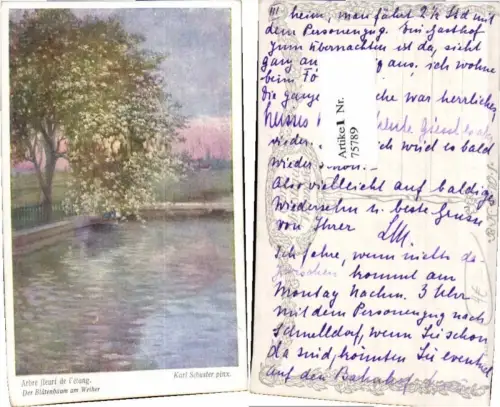 Arbre fleuri de l'étang.
Der Blütenbaum am Weiher
Karl Schuster pinx.
III heim, man fährt 2 ½ Std mit
dem Personenzug. Ein Gasthof
zum übernachten ist da, sieht
ganz an aus, ich wohne
beim
die ganze che war herrliches,
heute
wieder ich wird es bald
wieder schön.
Also vielleicht auf baldiges
Wiedersehn u. beste Grüsse
von Ihrer LM.
Ich fahre, wenn nichts da-
zwischen kommt am
Montag Nachm. 3 Uhr
mit dem Personenzug nach
Schnelldorf, wenn Sie schon
da sind, könnten Sie eventuel
auf den Bahnhof
Artikel Nr.
75789